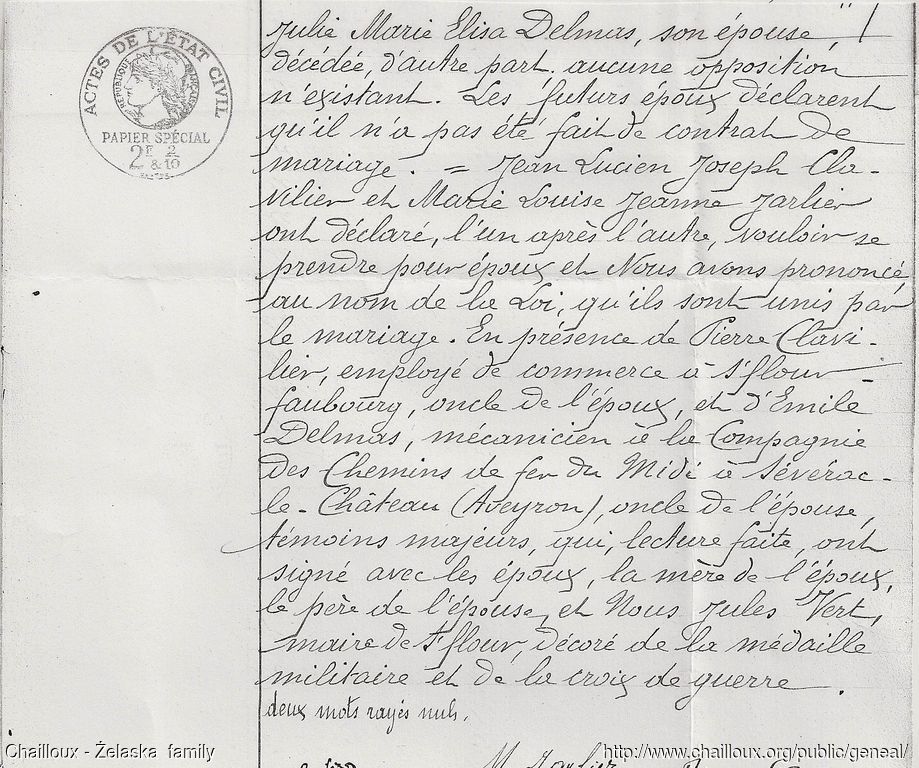 ACTES DE L'ÉTAT CIVIL
RÉPUBLIQUE FRANÇAISE
PAPIER SPÉCIAL
2F 2
& 10
Julie Marie Elisa Delmas, son épouse,
décédée, d'autre part. aucune opposition
n'existant. Les futurs époux déclarent
qu'il n'a pas été fait de contrat de
mariage. = Jean Lucien Joseph Cla-
vilier et Marie Louise Jeanne Jarlier
ont déclaré, l'un après l'autre, vouloir se
prendre pour époux et Nous avons prononcé,
au nom de la Loi, qu'ils sont unis par
le mariage. En présence de Pierre Clavi-
lier, employé de commerce à St flour-
faubourg, oncle de l'époux, et d'Emile
Delmas, mécanicien à la Compagnie
des Chemins de fer du Midi à Sévérac-
le-Château (Aveyron), oncle de l'épouse,
témoins majeurs, qui, lecture faite, ont
signé avec les époux, la mère de l'époux,
le père de l'épouse, et Nous Jules Vert,
maire de St flour, décoré de la médaille
militaire et de la croix de guerre.
deux mots rayés nuls.
M. Jarlier
Chailloux - Żelaska family
http://www.chailloux.org/public/geneal/